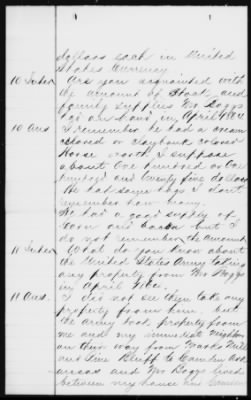 dollars each in United
States Currency
10 Inter Are you acquainted with
the amount of Stock and
family supplies Mr Boggs
had on hand in April 1864
10 Ans I remember he had a cream
colored or claybank colored
Horse worth I suppose
about One hundred or One
hundred and twenty five dollars
He had some hogs I don't
remember how many.
He had a good supply of
corn and bacon but I
do not remember the amount
11 Inter What do you know about
the United States Army taking
any property from Mr Boggs
in April 1864.
11 Ans. I did not see them take any
property from him, but
the army took property from
me and my immediate neighbors
on their way from Marks Mill
and Pine Bluff to Camden Ark
ansas and Mr Boggs lived
between my house and Camden